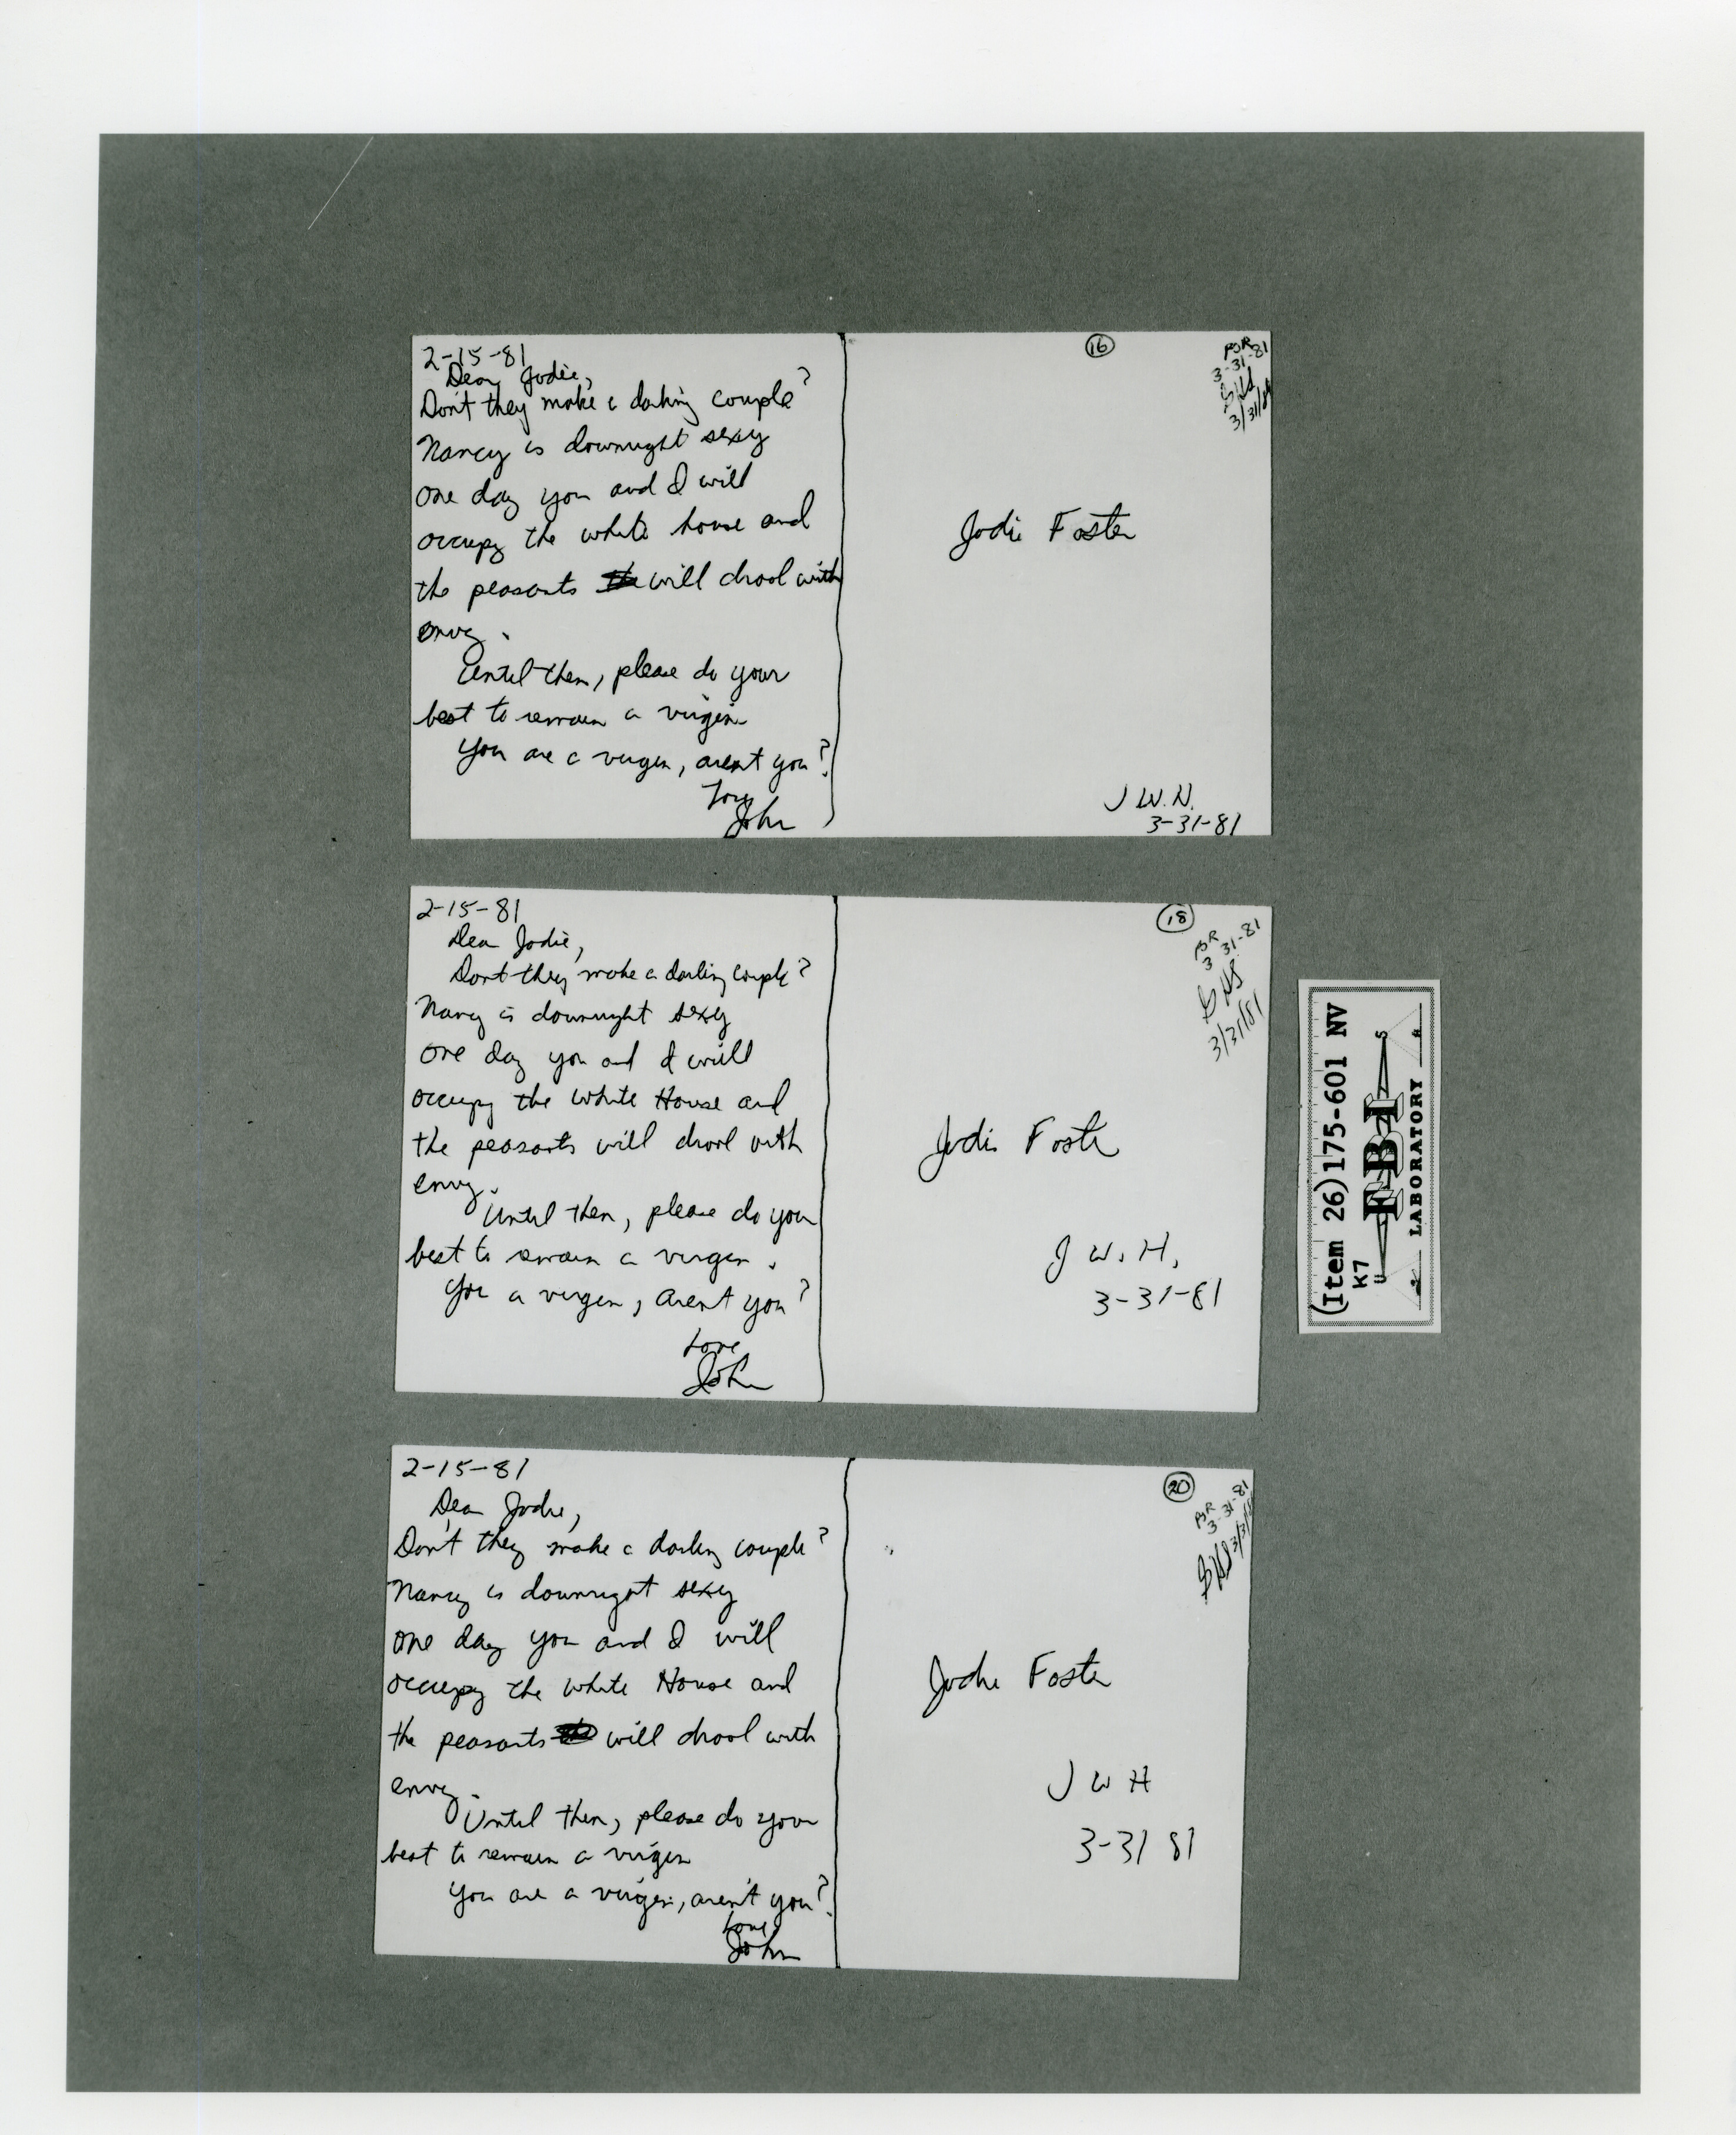 2-15-81
Dear Jodie,
Don't they make a darling couple?
Nancy is downright sexy
One day you and I will
occupy the white house and
the peasants will drool with
envy.
Until then, please do your
best to remain a virgin
You are a virgin, aren't you?
Love
John
16
PSR
3-31-81
3/31/81
Jodie Foster
J W.H.
3-31-81
2-15-81
Dear Jodie,
Don't they make a darling couple?
Nancy is downright sexy
One day you and I will
occupy the White House and
the peasants will drool with
envy.
Until then, please do your
best to remain a virgin.
You a virgin, aren't you?
Love
John
18
PSR
3-31-81
3/31/81
Jodie Foster
J W. H.
3-31-81
2-15-81
Dear Jodie,
Don't they make a darling couple?
Nancy is downright sexy
One day you and I will
occupy the White House and
the peasants will drool with
envy.
Until then, please do your
best to remain a virgin
You are a virgin, aren't you?
Love
John
20
PSR
3-31-81
3/31/81
Jodie Foster
J W H
3-31 81
(Item 26)175-601 NV
K7
FBI
LABORATORY